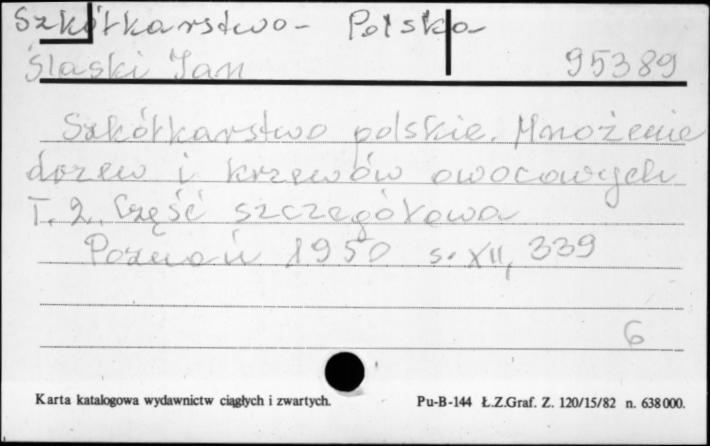 Szkółkarstwo - Polska
Ślaski Jan 95389
Szkółkarstwo polskie. Mnożenie
drzew i krzewów owocowych
T. 2. Część szczegółowa
Poznań 1950 s. XII, 339
6
Karta katalogowa wydawnictw ciągłych i zwartych. Pu-B-144 Ł.Z.Graf. Z. 120/15/82 n. 638000.